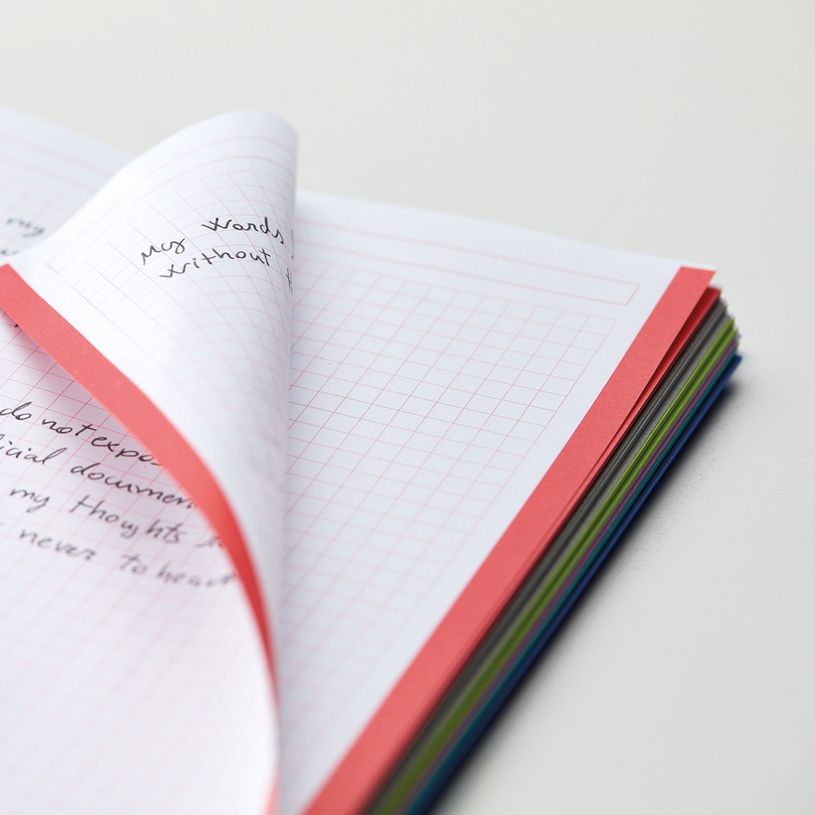 my
My words
without
do not expos
icial documen
my thoughts
never to heav